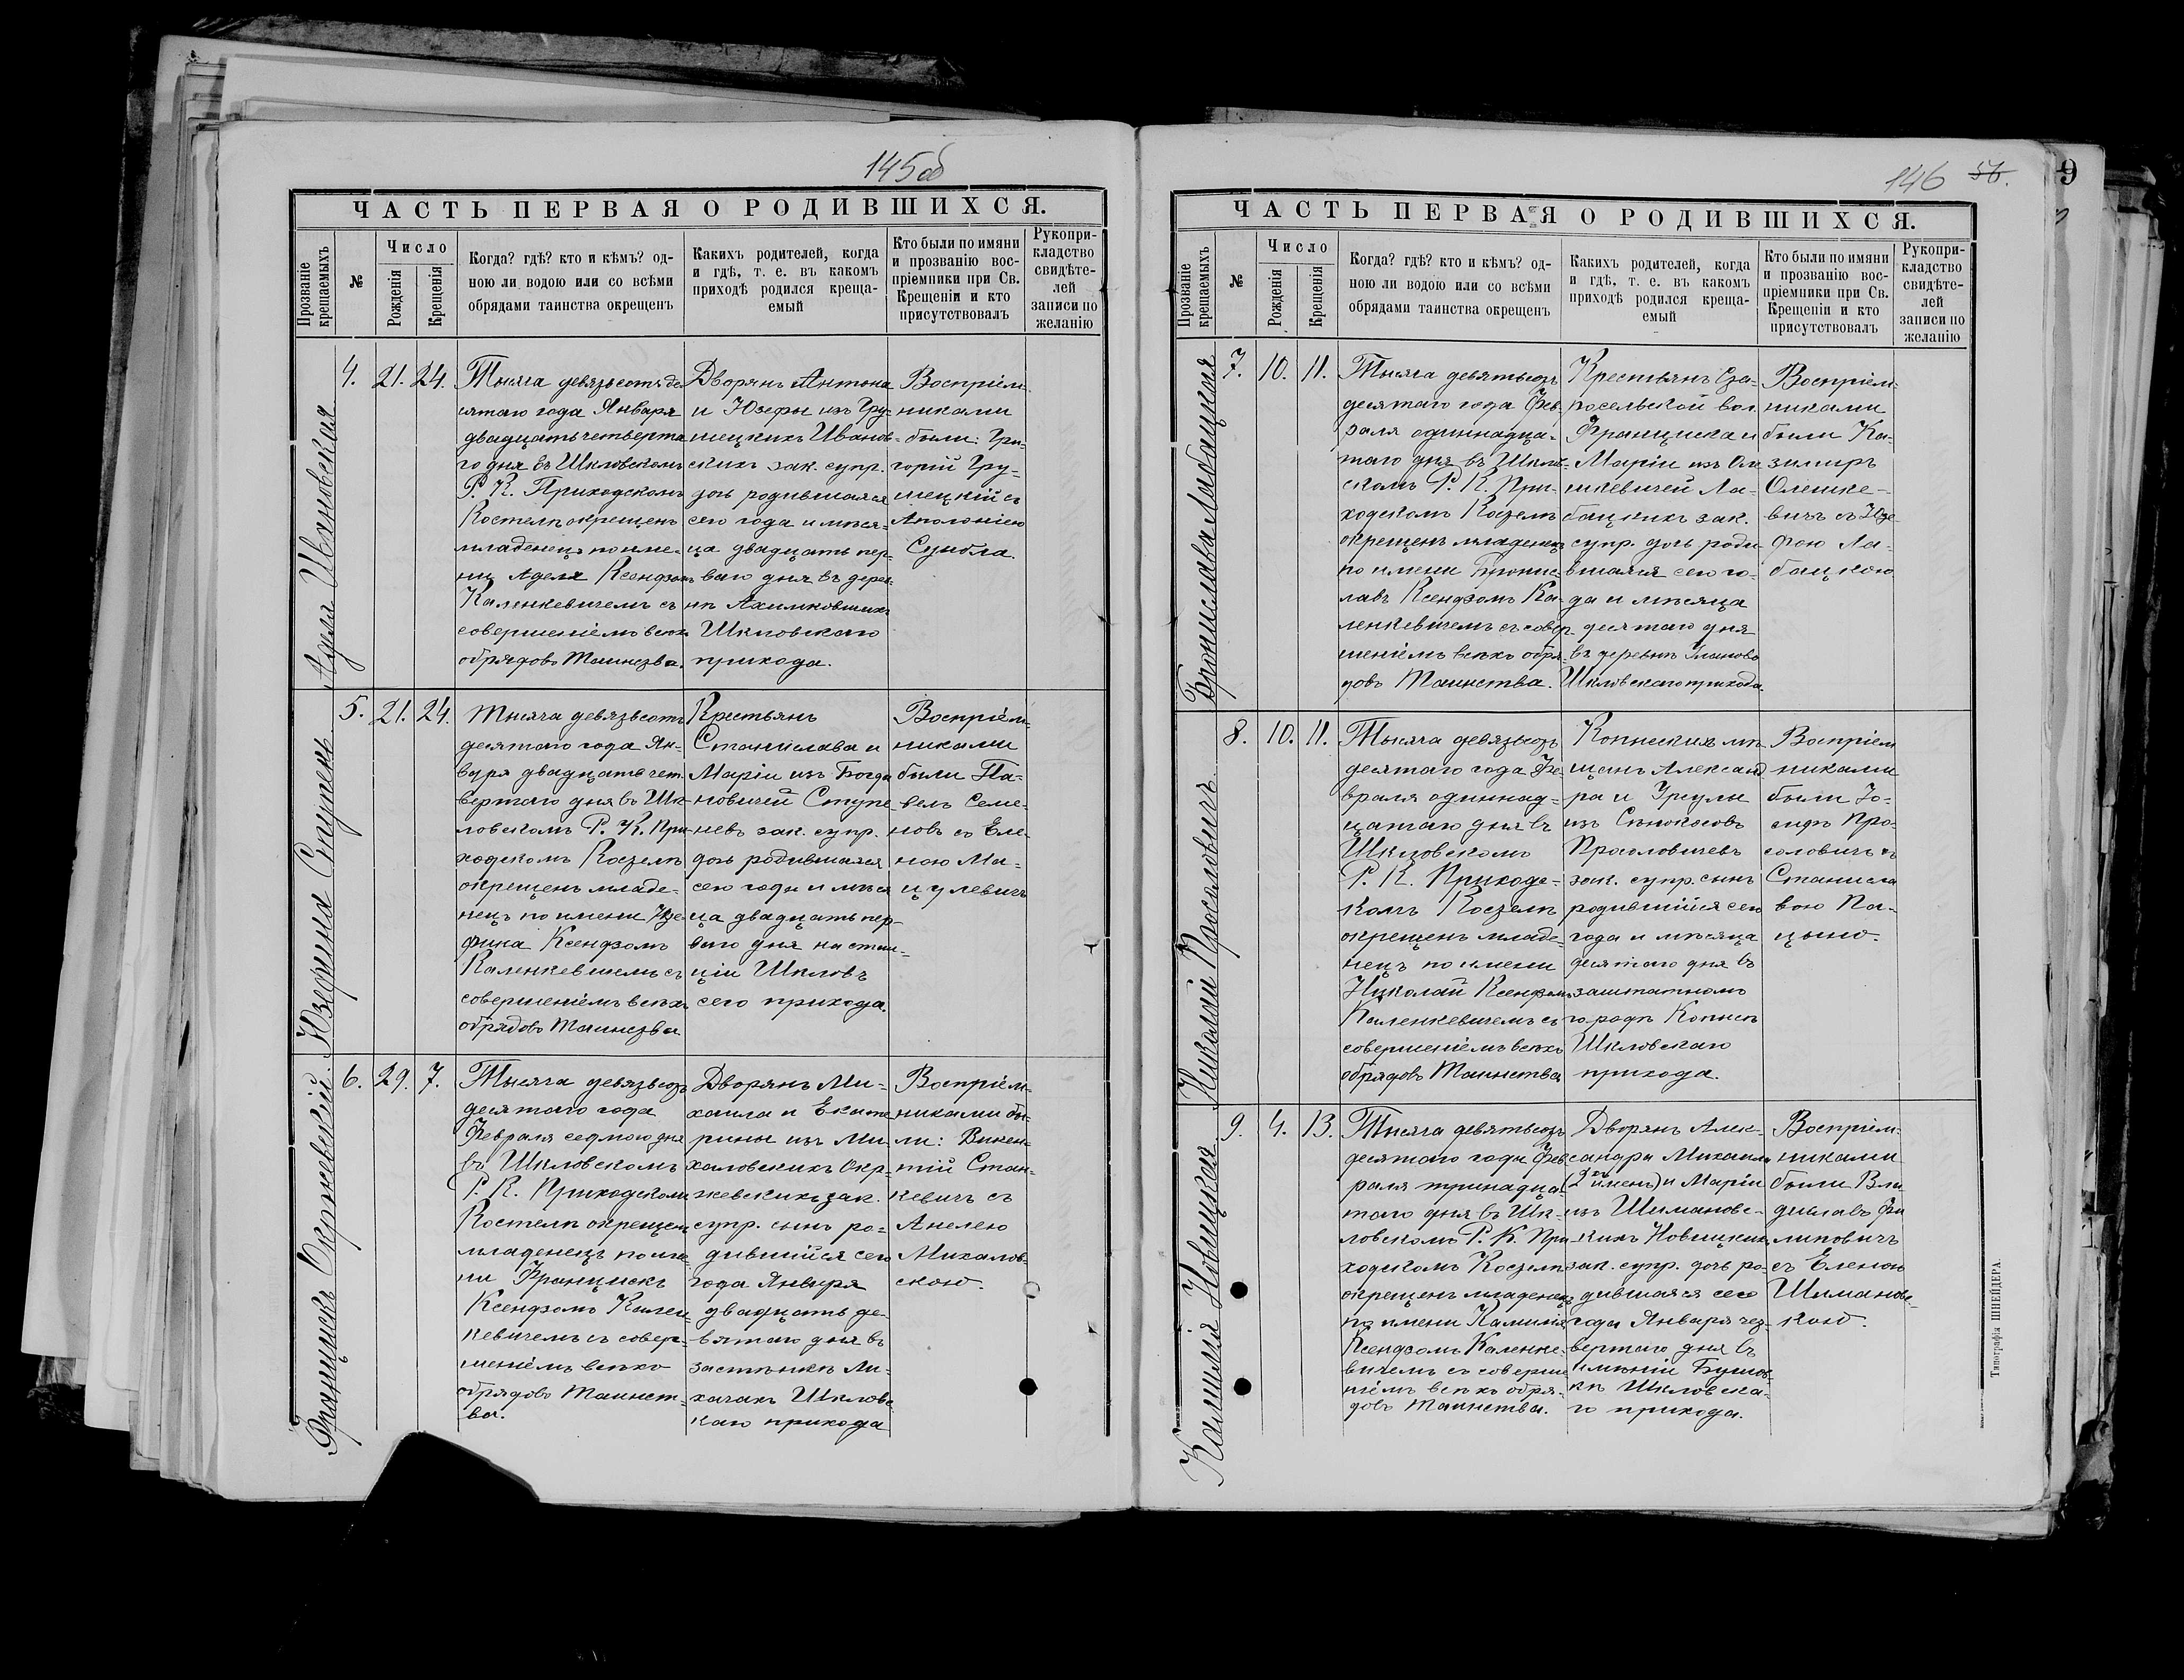 145об
ЧАСТЬ ПЕРВАЯ О РОДИВШИХСЯ.
Прозваніе крещаемыхъ
№
Число
Рожденія
Крещенія
Когда? гдѣ? кто и кѣмъ? од-
ною ли водою или со всѣми
обрядами таинства окрещенъ
Какихъ родителей, когда
и гдѣ, т. е. въ какомъ
приходѣ родился креща-
емый
Кто были по имяни
и прозванію вос-
пріемники при Св.
Крещеніи и кто
присутствовалъ
Рукопри-
кладство
свидѣте-
лей
записи по
желанію
Аделя Ивановская
4. 21. 24.
Тысяча девятьсотъ де
сятаго года Января
двадцать четверта
го дня въ Шкловскомъ
Р. К. Приходскомъ
Костелѣ окрещенъ
младенецъ по име-
ни Аделя Ксендзомъ
Каленкевичемъ съ
совершеніемъ всѣхъ
обрядовъ Таинства.
Дворянъ Антона
и Юзефы изъ Гру-
шецкихъ Иванов-
скихъ зак. супр.
дочь родившаяся
сего года и мѣся-
ца двадцать пер-
ваго дня въ дерев-
нѣ Ахимковщинѣ
Шкловскаго
прихода.
Воспріем-
никами
были: Гри-
горій Гру-
шецкій съ
Аполоніею
Сумбла.
Юзефина Ступень
5. 21. 24.
Тысяча девятьсотъ
десятаго года Ян-
варя двадцать чет
вертаго дня въ Шк-
ловскомъ Р. К. При-
ходскомъ Костелѣ
окрещенъ младе-
нецъ по имени Юзе-
фина Ксендзомъ
Каленкевичемъ съ
совершеніемъ всѣхъ
обрядовъ Таинства
Крестьянъ
Станислава и
Маріи изъ Богда
новичей Ступе-
невъ зак. супр.
дочь родившаяся
сего года и мѣся
ца двадцать пер-
ваго дня на стан-
ціи Шкловъ
сего прихода.
Воспріем-
никами
были Па-
велъ Семе-
новъ съ Еле-
ною Ма-
цулевичъ
Францискъ Окржевскій.
6. 29. 7.
Тысяча девятьсотъ
десятаго года
Февраля седмого дня
въ Шкловскомъ
Р. К. Приходскомъ
Костелѣ окрещенъ
младенецъ по име
ни Францискъ
Ксендзомъ Кален-
кевичемъ съ совер-
шеніемъ всѣхъ
обрядовъ Таинст-
ва.
Дворянъ Ми-
хаила и Екате
рины изъ Ми-
халовскихъ Окр-
жевскихъ зак.
супр. сынъ ро-
дившійся сего
года Января
двадцать де-
вятаго дня въ
застѣнкѣ Ли-
хачахъ Шкловс
каго прихода
Воспріем-
никами бы-
ли: Викен-
тій Стан-
кевичъ съ
Анелею
Михалов-
скою.
146 56.
9
ЧАСТЬ ПЕРВАЯ О РОДИВШИХСЯ.
Прозваніе крещаемыхъ
№
Число
Рожденія
Крещенія
Когда? гдѣ? кто и кѣмъ? од-
ною ли водою или со всѣми
обрядами таинства окрещенъ
Какихъ родителей, когда
и гдѣ, т. е. въ какомъ
приходѣ родился креща-
емый
Кто были по имяни
и прозванію вос-
пріемники при Св.
Крещеніи и кто
присутствовалъ
Рукопри-
кладство
свидѣте-
лей
записи по
желанію
Бронислава Лабацкая
7. 10. 11.
Тысяча девятьсотъ
десятаго года Фев-
раля одиннадца-
таго дня въ Шклов-
скомъ Р. К. При-
ходскомъ Костелѣ
окрещенъ младенецъ
по имени Бронис-
лавъ Ксендзомъ Ка-
ленкевичемъ съ совер-
шеніемъ всѣхъ обря-
довъ Таинства.
Крестьянъ Ста-
росельской вол.
Франциска и
Маріи изъ Оле
шкевичей Ла-
бацкихъ зак.
супр. дочь роди-
вшаяся сего го-
да и мѣсяца
десятаго дня
въ деревнѣ Уланово
Шкловскаго прихода.
Воспріем-
никами
были Ка-
зимиръ
Олешке-
вичъ съ Юзе-
фою Ла-
бацкою
Николай Прософовичъ
8. 10. 11.
Тысяча девятьсотъ
десятаго года Фе-
враля одиннад-
цатаго дня въ
Шкловскомъ
Р. К. Приходс-
комъ Костелѣ
окрещенъ младе-
нецъ по имени
Николай Ксендзомъ
Каленкевичемъ съ
совершеніемъ всѣхъ
обрядовъ Таинства
Копысскихъ мѣ-
щанъ Александ
ра и Урсулы
изъ Сѣнокосовъ
зак. супр. сынъ
родившійся сего
года и мѣсяца
десятаго дня въ
заштатномъ
городѣ Копысѣ
Шкловскаго
прихода.
Воспріем
никами
были Іо-
сифъ Про-
соловичъ съ
Станисла
вою Па-
цыно.
Камилія Новицкая
9. 4. 13.
Тысяча девятьсотъ
десятаго года Фев
раля тринадца-
таго дня въ Шк-
ловскомъ Р. К. При-
ходскомъ Костелѣ
окрещенъ младенецъ
по имени Камилія
Ксендзомъ Каленке-
вичемъ съ соверше
ніемъ всѣхъ обря-
довъ Таинства.
Дворянъ Алек-
сандра Михаила
(2хъ имень) и Маріи
изъ Шимановс-
кихъ Новицкихъ
зак. супр. дочь ро-
дившаяся сего
года Января чет-
вертаго дня въ
имѣніи
Шкловска-
го прихода.
Воспріем-
никами
были Вла
диславъ Фи
липовичъ
съ Еленою
Шимановс-
кою.
Типографія ШНЕЙДЕРА.